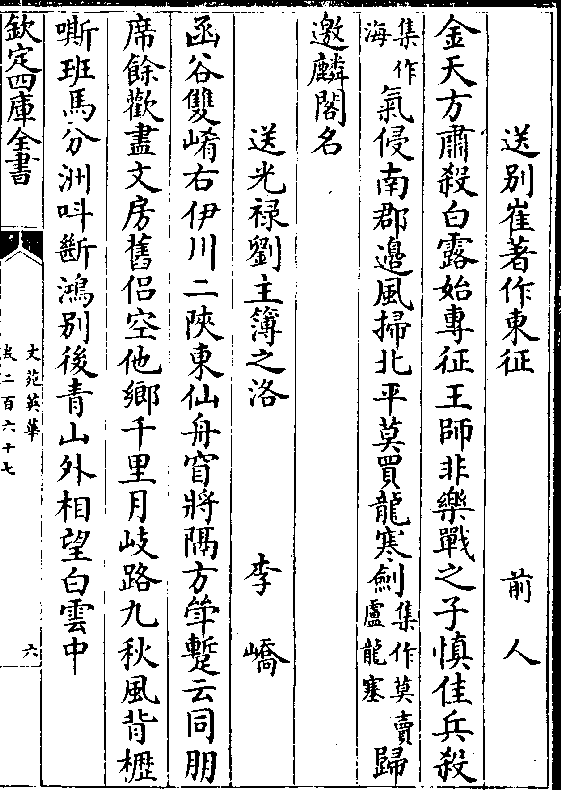 送别崔著作東征　前人
金天方肅殺白露始專征王師非樂戰之子慎佳兵殺
集作海氣侵南郡邉風掃北平莫買龍寒劍集作莫賣盧龍塞歸
邀麟閣名
送光禄劉主簿之洛　李嶠
函谷雙崤右伊川二陜東仙舟窅將隅方斚蹔云同朋
席餘歡盡文房舊侣空他鄉千里月岐路九秋風背櫪
嘶班馬分洲呌斷鴻别後青山外相望白雲中
欽定四庫全書
文苑英華
卷二百六十七
六